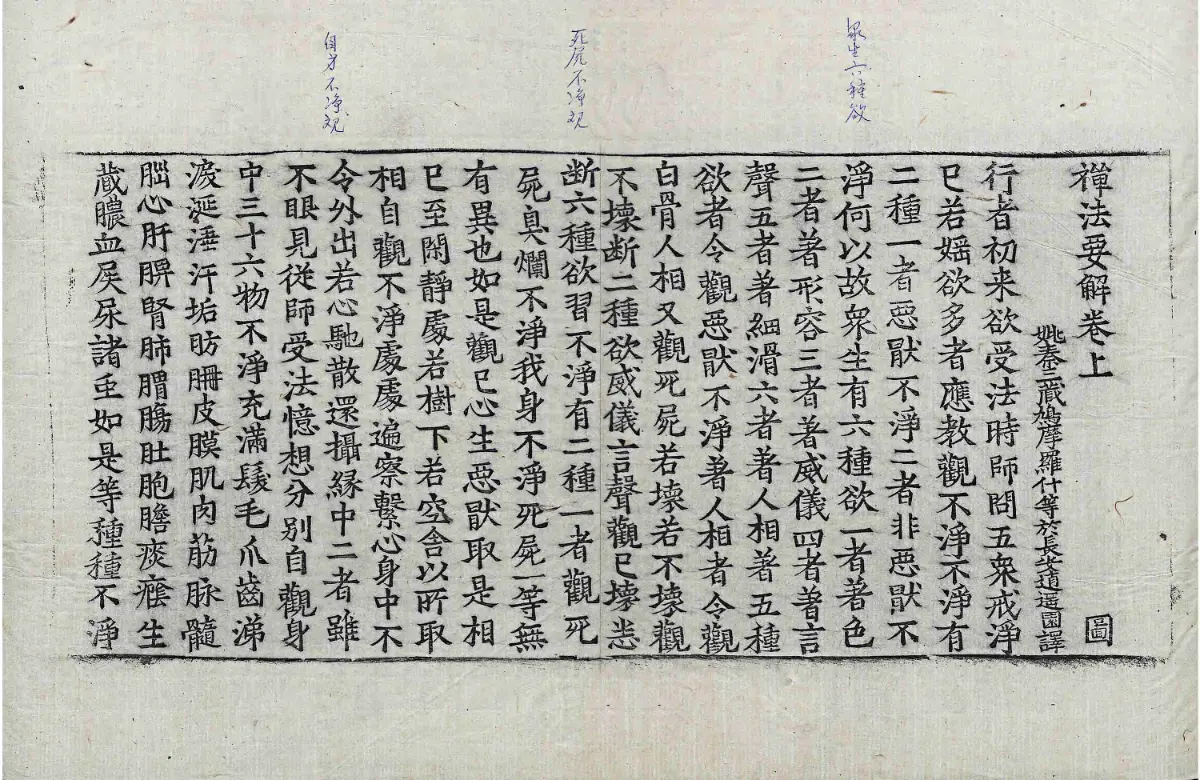 衆生六種欲
死屍不净观
自身不净观
禪法要解卷上
圖
姚秦三藏鳩摩羅什等於長安逍遥園譯
行者初来欲受法時師問五衆戒淨
已若婬欲多者應教觀不淨不淨有
二種一者惡猒不淨二者非惡猒不
淨何以故衆生有六種欲一者著色
二者著形容三者著威儀四者著言
聲五者著細滑六者著人相著五種
欲者令觀惡猒不淨著人相者令觀
白骨人相又觀死屍若壞若不壞觀
不壞斷二種欲威儀言聲觀已壞悉
断六種欲習不淨有二種一者觀死
屍臭爛不淨我身不淨死屍一等無
有異也如是觀已心生惡猒取是相
已至閑静處若樹下若空舎以所取
相自觀不淨處處遍察繫心身中不
令外出若心馳散還攝縁中二者雖
不眼見從師受法憶想分别自觀身
中三十六物不淨充滿髮毛爪齒涕
淚涎唾汗垢肪𦙱皮膜肌肉筋脉髓
腦心肝脾腎肺胃腸肚胞膽痰癊生
藏膿血屎尿諸虫如是等種種不淨